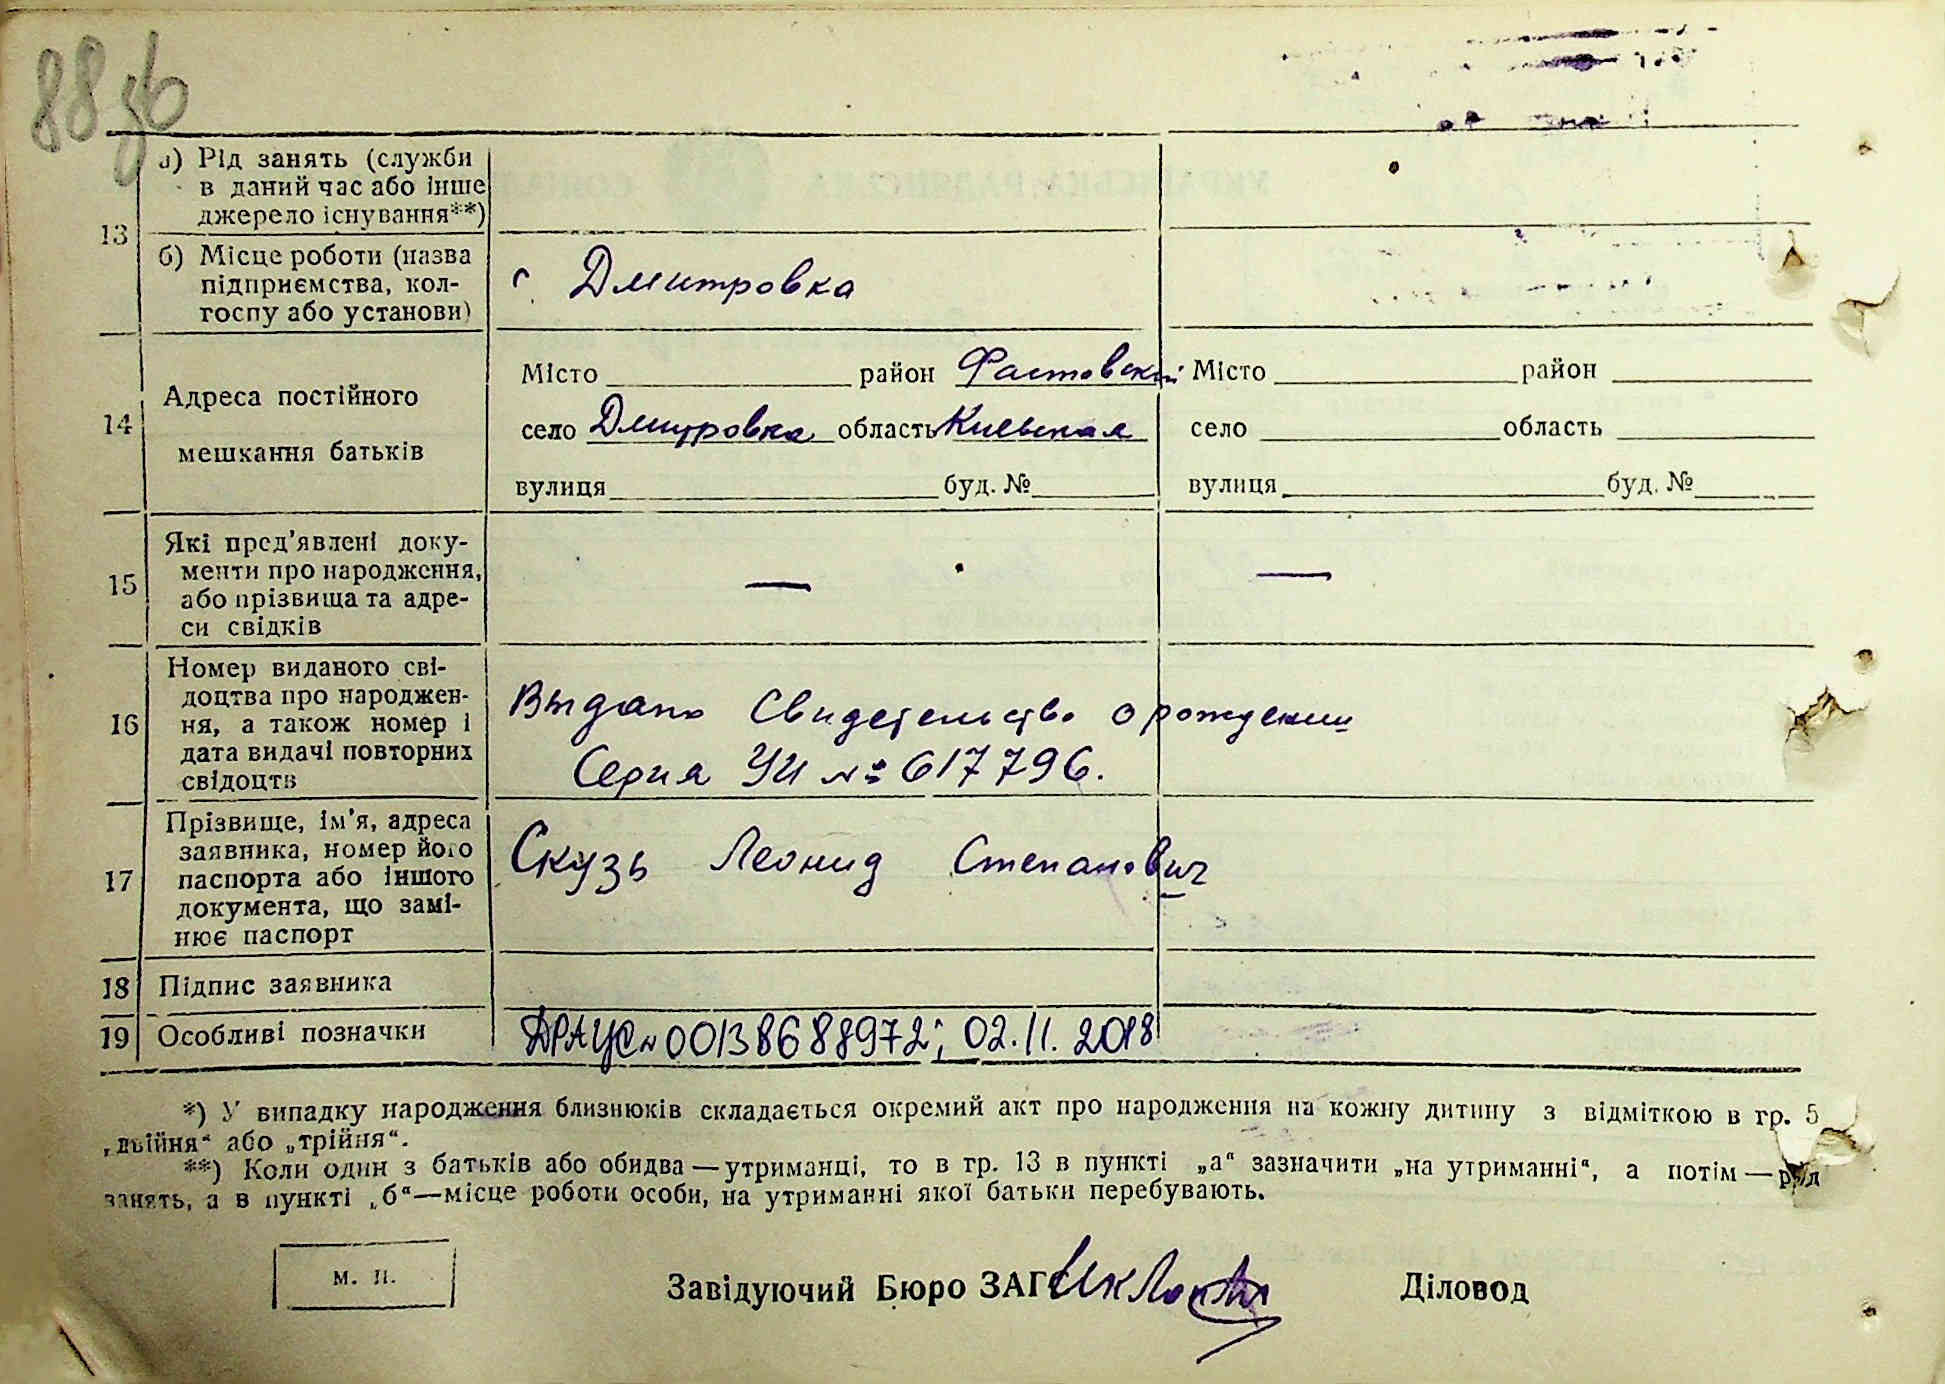 88 зб
13 а) Рід занять (служби
в даний час або інше
джерело існування**)
б) Місце роботи (назва
підприємства, кол-
госпу або установи)
с Дмитровка
14 Адреса постійного
мешкання батьків
Місто район Фастовский
село Дмитровка область Киевская
вулиця буд. №
Місто район
село область
вулиця буд. №
15 Які пред'явлені доку-
менти про народження,
або прізвища та адре-
си свідків
—
—
16 Номер виданого сві-
доцтва про народжен-
ня, а також номер і
дата видачі повторних
свідоцтв
Выдано Свидетельство о рождении
Серия УИ № 617796.
17 Прізвище, ім'я, адреса
заявника, номер його
паспорта або іншого
документа, що замі-
нює паспорт
Скузь Леонид Степанович
18 Підпис заявника
19 Особливі позначки
ДРАЦС № 00138688972; 02.11.2018
*) У випадку народження близнюків складається окремий акт про народження на кожну дитину з відміткою в гр. 5
„двійня“ або „трійня“.
**) Коли один з батьків або обидва — утриманці, то в гр. 13 в пункті „а“ зазначити „на утриманні“, а потім — рід
занять, а в пункті „б“ — місце роботи особи, на утриманні якої батьки перебувають.
М. П.
Завідуючий Бюро ЗАГС
Діловод